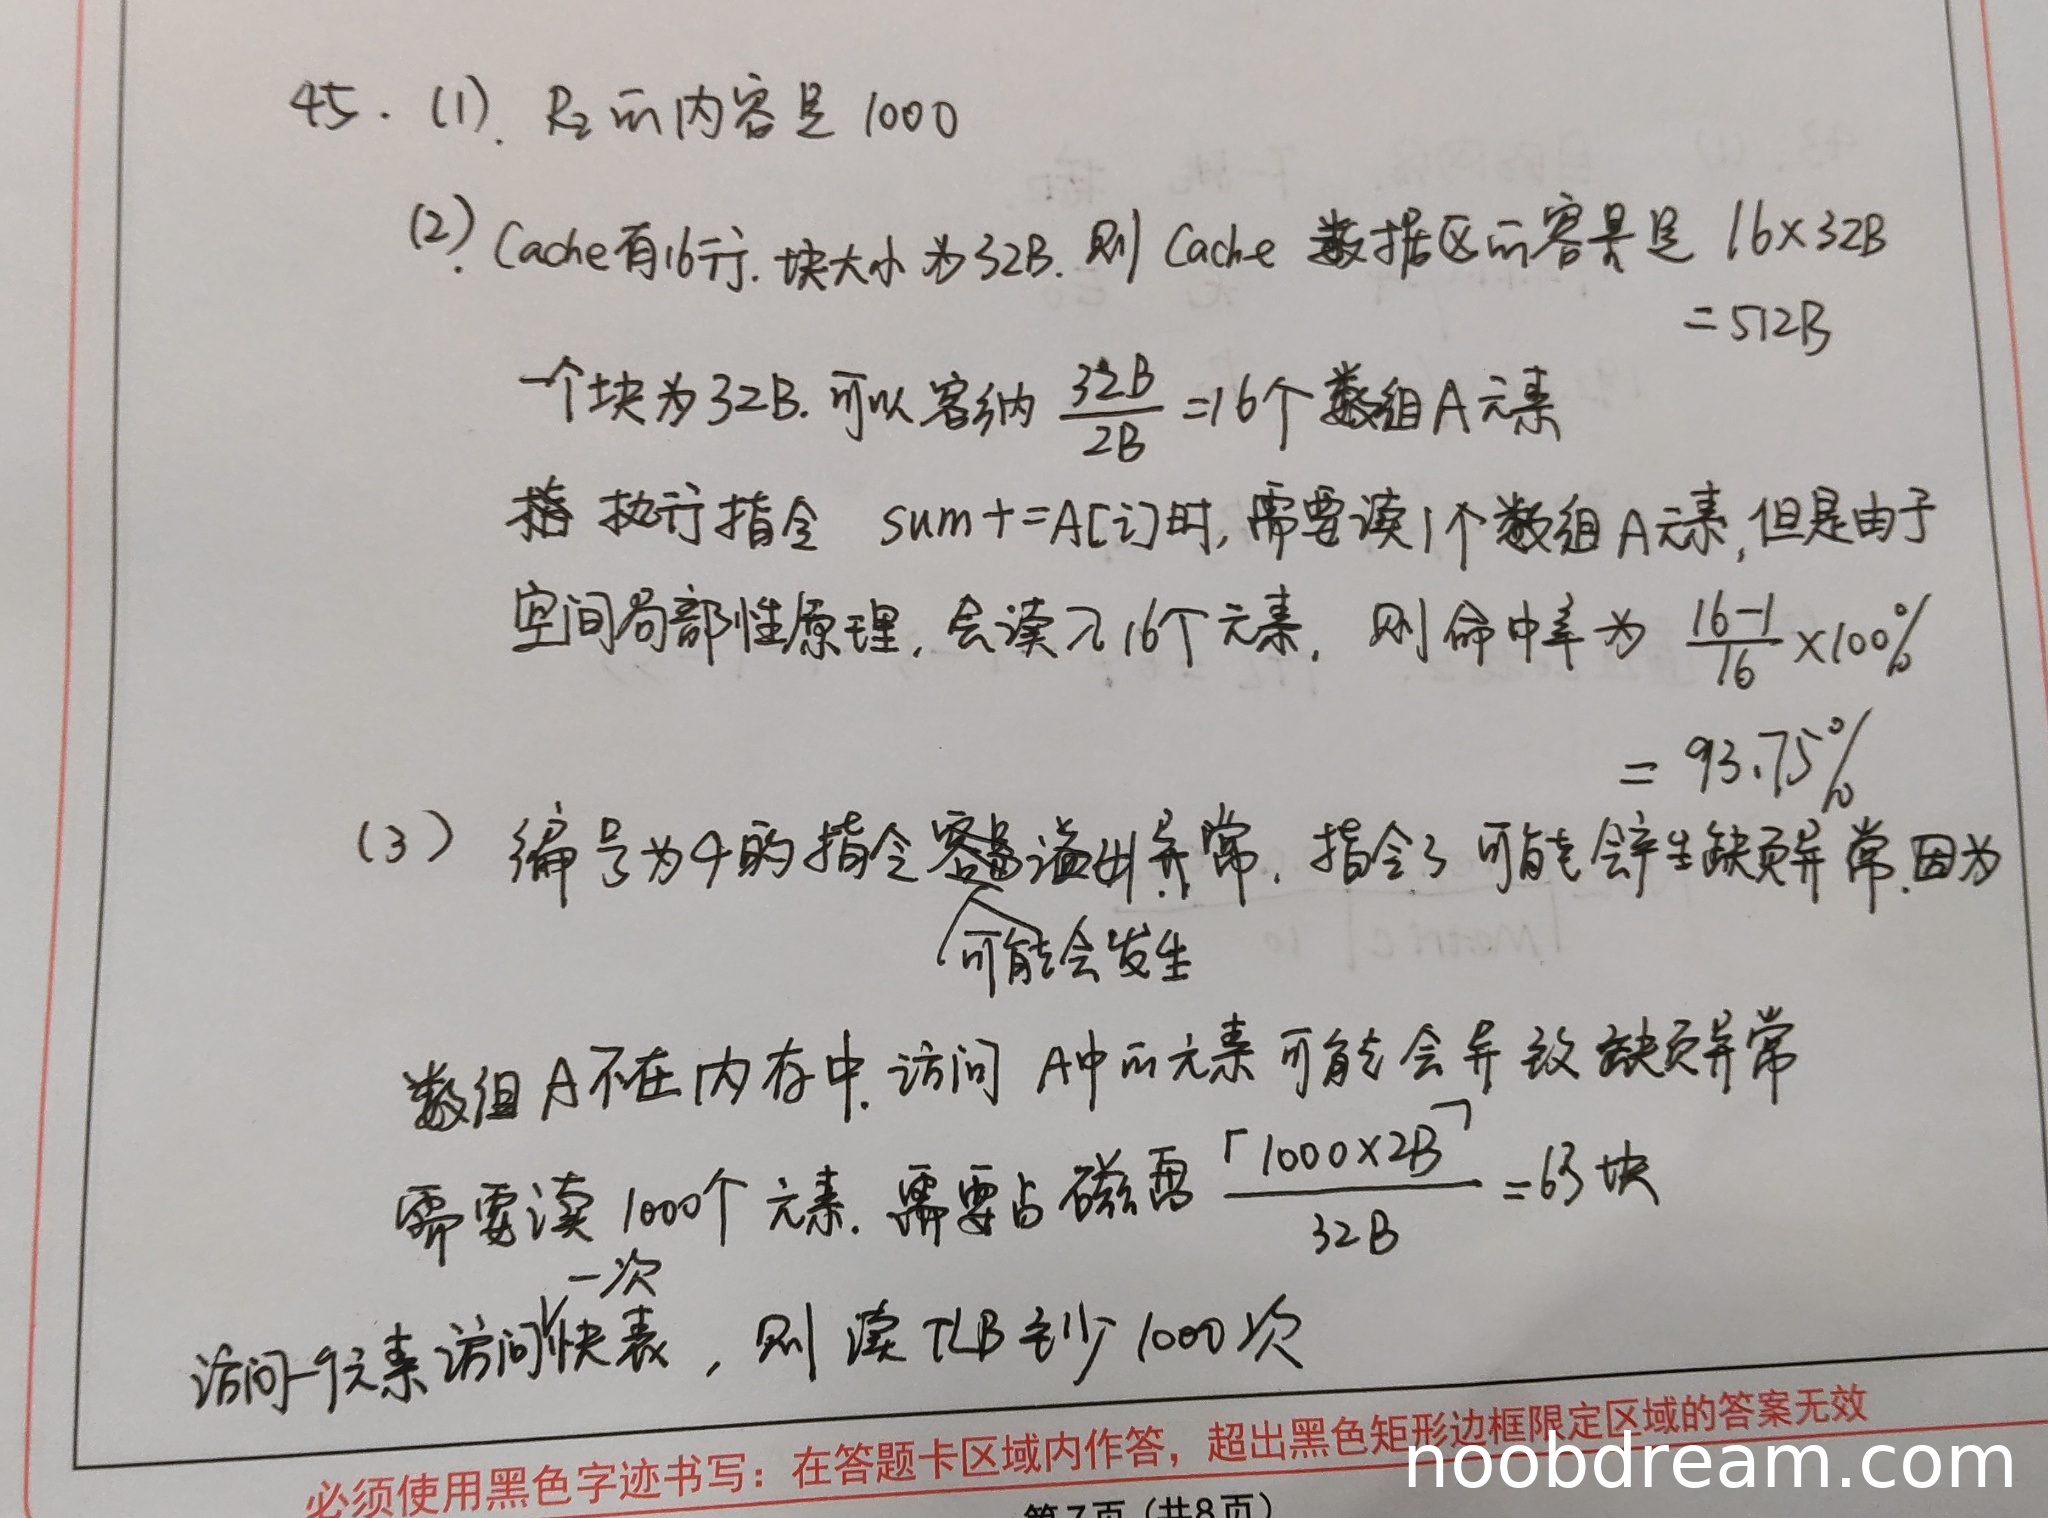 45. (1). R₂的内容是 1000
(2). Cache有16行. 块大小为32B. 则 Cache 数据区的容量是 16×32B
=512B
一个块为32B. 可以容纳 32B/2B =16个数组A元素
执行指令 sum+=A[i]时, 需要读1个数组A元素, 但是由于
空间局部性原理, 会读入16个元素. 则命中率为 (16-1)/16 ×100%
= 93.75%
(3) 编号为4的指令可能会发生溢出异常. 指令3可能会产生缺页异常. 因为
数组A不在内存中. 访问 A中的元素可能会导致缺页异常
需要读 1000个元素. 需要占磁盘 ⌈1000×2B⌉/32B =63块
访问一个元素访问一次快表, 则读TLB至少1000次
必须使用黑色字迹书写：在答题卡区域内作答，超出黑色矩形边框限定区域的答案无效
第7页 (共8页)
noobdream.com